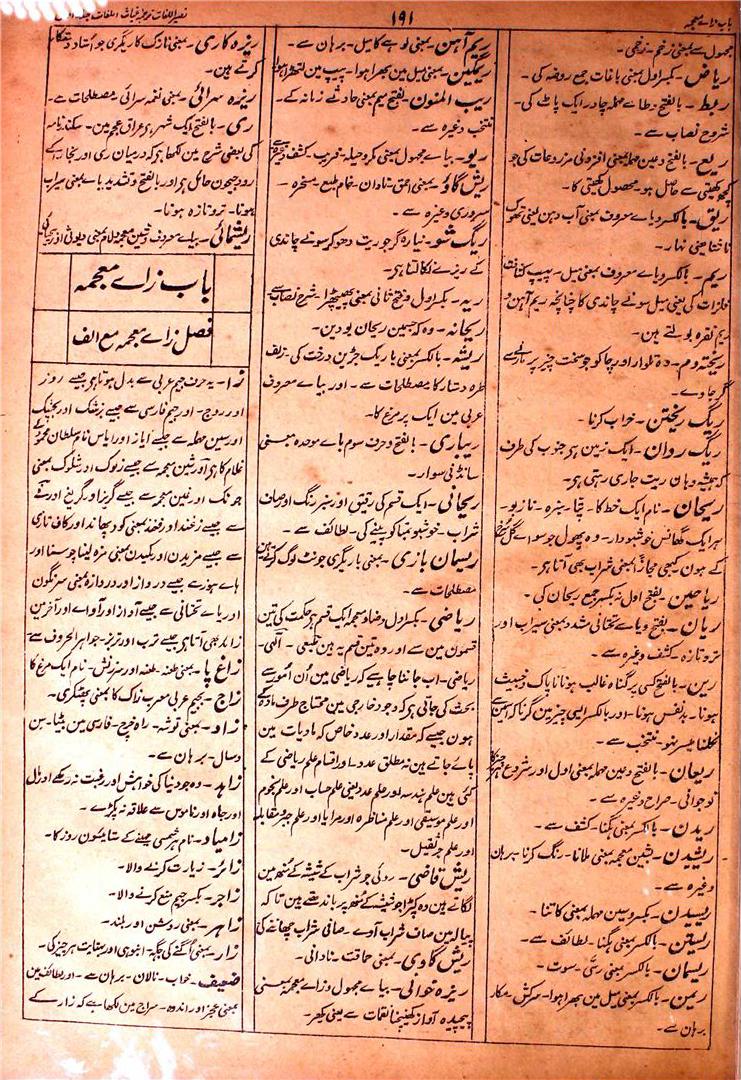 باب زاے معجمہ
۱۹۱
نصیر اللغات ترجمہ غیاث اللغات جلد
مجہول سے بمعنی زخم۔ زخمی۔
ریاض۔ بکسر اول بمعنی باغات جمع روضہ کی۔
ریط۔ بالفتح و طاے مہملہ چادر ایک پاٹ کی۔
شروح نصاب سے۔
ریع۔ بالفتح و عین مہملہ بمعنی افزونی مزروعات کی جو
کچھ کھیتی سے حاصل ہو۔ محصول کھیتی کا۔
ریق۔ بالکسر و یاے معروف بمعنی آب دہن یعنی تھوک
ناشتا یعنی نہار۔
ریم۔ بالکسر و یاے معروف بمعنی میل۔ پیپ کثافت
فلزات کی یعنی میل سونے چاندی کا چنانچہ ریم آہن و
ریم نقرہ بولتے ہین۔
ریختہ دم۔ وہ تلوار اور چاکو جو سخت چیز پر مارنے سے
گر جاوے۔
ریگ ریختن۔ خراب کرنا۔
ریگ روان۔ ایک زمین ہے جنوب کی طرف
کہ ہمیشہ وہان ریت جاری رہتی ہے۔
ریحان۔ نام ایک خط کا۔ پتا۔ سبزہ۔ نازبو۔
ہر ایک گھانس خوشبودار۔ وہ پھول جو سواے گل سرخ
کے ہون کبھی مجازاً بمعنی شراب بھی آتا ہے۔
ریاحین۔ بفتح اول نہ بکسر جمع ریحان کی۔
ریان۔ بفتح و یاے تحتانی مشدد بمعنی سیراب اور
تر و تازہ۔ کشف وغیرہ سے۔
رین۔ بالفتح کسی پر گناہ غالب ہونا ناپاک و خبیث
ہونا۔ بدنفس ہونا۔ اور بالکسر ایسی چیز مین گرنا کہ اسمین سے
نکلنا میسر نہو۔ منتخب سے۔
ریعان۔ بالفتح و عین مہملہ بمعنی اول اور شروع ہر چیز کا
نوجوانی۔ صراح وغیرہ سے۔
ریدن۔ بالکسر بمعنی ہگنا۔ کشف سے۔
ریشیدن۔ بشین معجمہ بمعنی ملانا۔ رنگ کرنا۔ برہان
وغیرہ سے۔
ریسیدن۔ بکسر و سین مہملہ بمعنی کاتنا۔
ریستن۔ بالکسر بمعنی ہگنا۔ لطائف سے۔
ریسمان۔ بالکسر بمعنی رسّی۔ سوت۔
ریمن۔ بالکسر بمعنی میل مین بھرا ہوا۔ سرکش۔ مکار
برہان سے۔
ریم آہن۔ بمعنی لوہے کا میل۔ برہان سے۔
ریمگین۔ بمعنی میل مین بھرا ہوا۔ پیپ مین لتھڑا ہوا
ریب المنون۔ بفتح میم بمعنی حادثے زمانہ کے۔
منتخب وغیرہ سے۔
ریو۔ بیاے مجہول بمعنی مکر و حیلہ و فریب۔ کشف وغیرہ سے
ریش گاؤ۔ بمعنی احمق۔ نادان۔ خام طمع۔ مسخرہ۔
سروری وغیرہ سے۔
ریگ شو۔ نیارہ گر جو ریت دھوکر سونے چاندی
کے ریزے نکالتا ہے۔
ریہ۔ بکسر اول و فتح ثانی بمعنی پھیپھڑا۔ شرح نصاب سے
ریحانہ۔ وہ کہ جسمین ریحان بودین۔
ریشہ۔ بالکسر بمعنی باریک جڑین درخت کی۔ زلف
طرہ دستار کا مصطلحات سے۔ اور بیاے معروف
عربی مین ایک پر مرغ کا۔
ریباری۔ بالفتح و حرف سوم باے موحدہ بمعنی
سانڈنی سوار۔
ریحانی۔ ایک قسم کی رقیق اور سبز رنگ اور صاف
شراب۔ خوشبو تنباکو پینے کی۔ لطائف سے۔
ریسمان بازی۔ بمعنی بازیگری جو نٹ لوگ کرتے ہین
مصطلحات سے۔
ریاضی۔ بکسر اول و ضاد معجمہ ایک قسم ہے حکمت کی تین
قسمون مین سے اور وہ تین قسم یہ ہین طبیعی۔ الٰہی۔
ریاضی۔ اب جاننا چاہیے کہ ریاضی مین اُن اُمور سے
بحث کی جاتی ہے کہ وجود خارجی مین محتاج طرف مادہ کے
ہون جیسے کہ مقدار اور عدد خاص کہ مادیات مین
پائے جاتے ہین نہ مطلق عدد۔ اور اقسام علم ریاضی کے
کئی ہین علم ہندسہ اور علم عدد یعنی علم حساب اور علم نجوم
اور علم موسیقی اور علم مناظرہ اور مرایا اور علم جبر و مقابلہ
اور علم جرثقیل۔
ریش قاضی۔ روئی جو شراب کے شیشہ کے مُنھ مین
لگاتے ہین وہ کپڑا جو شیشہ کے مُنھ پر باندھتے ہین تا کہ
پیالہ مین صاف شراب آوے۔ صافی شراب چھاننے کی
ریش گاوی۔ بمعنی حماقت۔ نادانی۔
ریزہ خوانی۔ بیاے مجہول و زاے معجمہ بمعنی
پیچیدہ آواز کھینچنا نغمات سے یعنی پھر۔
ریزہ کاری۔ بمعنی نازک کاریگری جو اُستاد دستکار
کرتے ہین۔
ریزہ سرائی۔ بمعنی نغمہ سرائی مصطلحات سے۔
ری۔ بالفتح ایک شہر ہے عراق عجم مین۔ سکندر نامہ
کی بعضی شرح مین لکھا ہے کہ درمیان ری اور بخارا کے
رود جیحون حائل ہے اور بالفتح و تشدید یاے بمعنی سیراب
ہونا۔ تر و تازہ ہونا۔
ریشمائی۔ بیاے معروف و شین معجمہ و لام بمعنی دیوثی اور بیحیائی
باب زاے معجمہ
فصل زاے معجمہ مع الف
زا۔ یہ حرف جیم عربی سے بدل ہوتا ہے جیسے روز
اور روج۔ اور جیم فارسی سے جیسے پزشک اور بچشک
اور سین مہملہ سے جیسے ایاز اور ایاس نام سلطان محمود کے
غلام کا ہے اور شین معجمہ سے جیسے زلوک اور شلوک بمعنی
جونک اور غین معجمہ سے جیسے گریز اور گریغ اور فے
سے جیسے زغند اور فغند بمعنی کود پھاند اور کاف تازی
سے جیسے مزیدن اور مکیدن بمعنی مزہ لینا چوسنا اور
ہاے ہوز سے جیسے درواز اور دروازہ بمعنی سرنگون
اور یاے تحتانی سے جیسے آواز اور آواے اور آخر مین
زاید بھی آتا ہے جیسے ترب اور تربز۔ جواہر الحروف سے
زاغ پا۔ بمعنی طعنہ۔ طعنہ اور سرزنش۔ نام ایک مرغ کا
زاج۔ بجیم عربی معرب زاک کا بمعنی پھٹکری۔
زاد۔ بمعنی توشہ۔ راہ خرچ۔ فارسی مین بیٹا۔ سن
و سال۔ برہان سے۔
زاہد۔ وہ جو دنیا کی خواہش اور رغبت نہ رکھے اور مال
اور جاہ اور ناموس سے علاقہ نہ پکڑے۔
زامیاد۔ نام ہر شمسی مہینے کے ستائیسون روز کا۔
زائر۔ زیارت کرنے والا۔
زاجر۔ بکسر جیم منع کرنے والا۔
زاہر۔ بمعنی روشن اور بلند۔
زار۔ بمعنی اُگنے کی جگہ۔ انبوہی اور بنہایت ہر چیز کی۔
ضعیف۔ خواب۔ نالان۔ برہان سے۔ اور لطائف مین
بمعنی عجز اور اندوہ۔ سراج مین لکھا ہے کہ زار کے